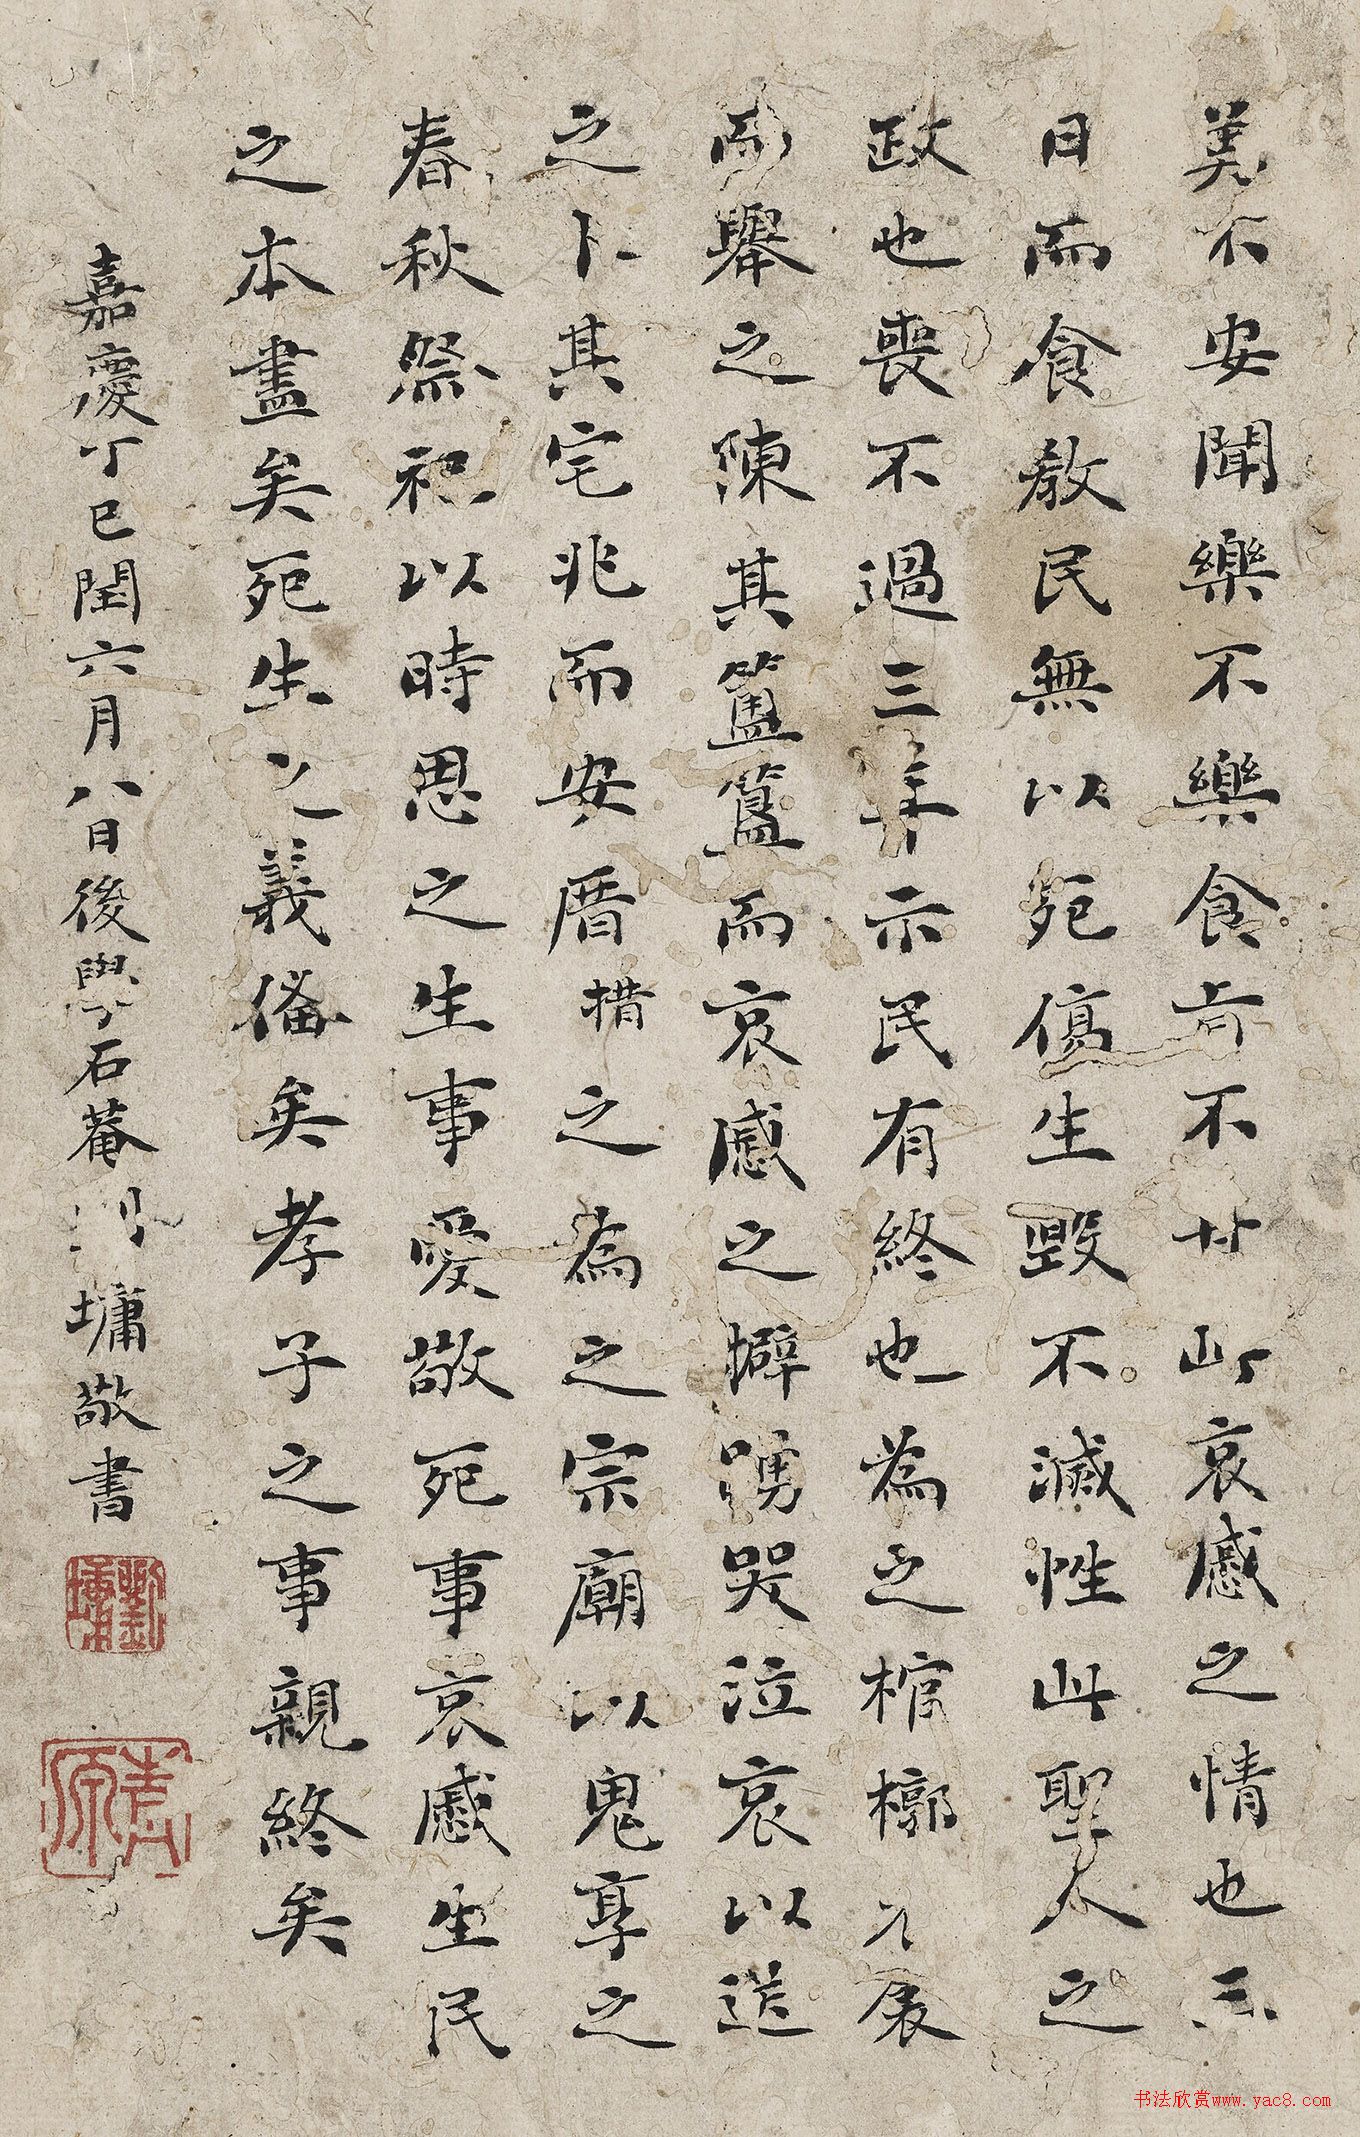 美不安聞樂不樂食旨不甘此哀慼之情也三
日而食教民無以死傷生毀不滅性此聖人之
政也喪不過三年示民有終也為之棺槨衣衾
而舉之陳其簠簋而哀慼之擗踴哭泣哀以送
之卜其宅兆而安厝措之為之宗廟以鬼享之
春秋祭祀以時思之生事愛敬死事哀慼生民
之本盡矣死生之義備矣孝子之事親終矣
嘉慶丁巳閏六月八日後學石菴劉墉敬書
劉墉
书法欣赏www.yac8.com